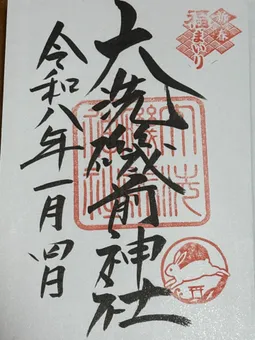 新春
福まいり
大洗磯前神社
令和八年一月四日